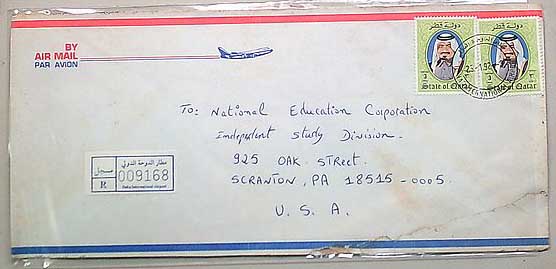 BY
AIR MAIL
PAR AVION
دولة قطر
دولة قطر
3
3
State of Qatar
State of Qatar
To: National Education Corporation
Independent Study Division.
925 OAK Street.
SCRANTON, PA 18515-0005.
U. S. A.
مطار الدوحة الدولي
مسجل
R
009168
Doha International Airport